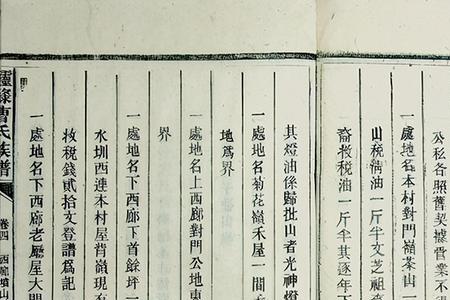 公私各照舊契據管業不得
一處地名本村對門嶺茶山一
山稅清油一斤半文芝祖
裔投稅油一斤半其逐年
其燈油係歸批山者光神燈
一處地名菊花嶺禾屋一間
地為界
一處地名上西廊對門公地東
界
一處地名下西廊下首餘坪一
水圳西連本村屋背嶺現有
收稅錢貳拾文登譜為記
一處地名下西廊老廳屋大門
曹氏族譜
卷四
西廊墳山